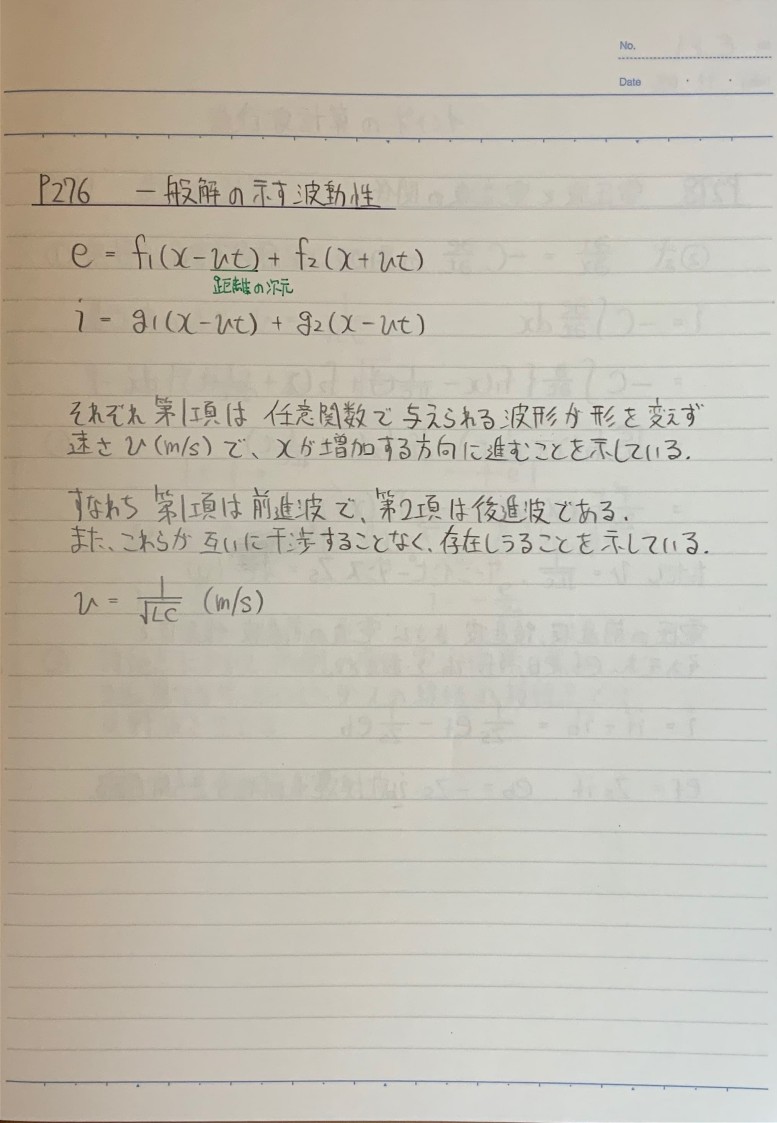 No.
Date
P276 一般解の示す波動性
e = f₁(x-vt) + f₂(x+vt)
距離の次元
i = g₁(x-vt) + g₂(x-vt)
それぞれ第1項は任意関数で与えられる波形が形を変えず
速さv(m/s)で、xが増加する方向に進むことを示している.
すなわち第1項は前進波で、第2項は後進波である.
また、これらが互いに干渉することなく、存在しうることを示している.
v = 1/√LC (m/s)